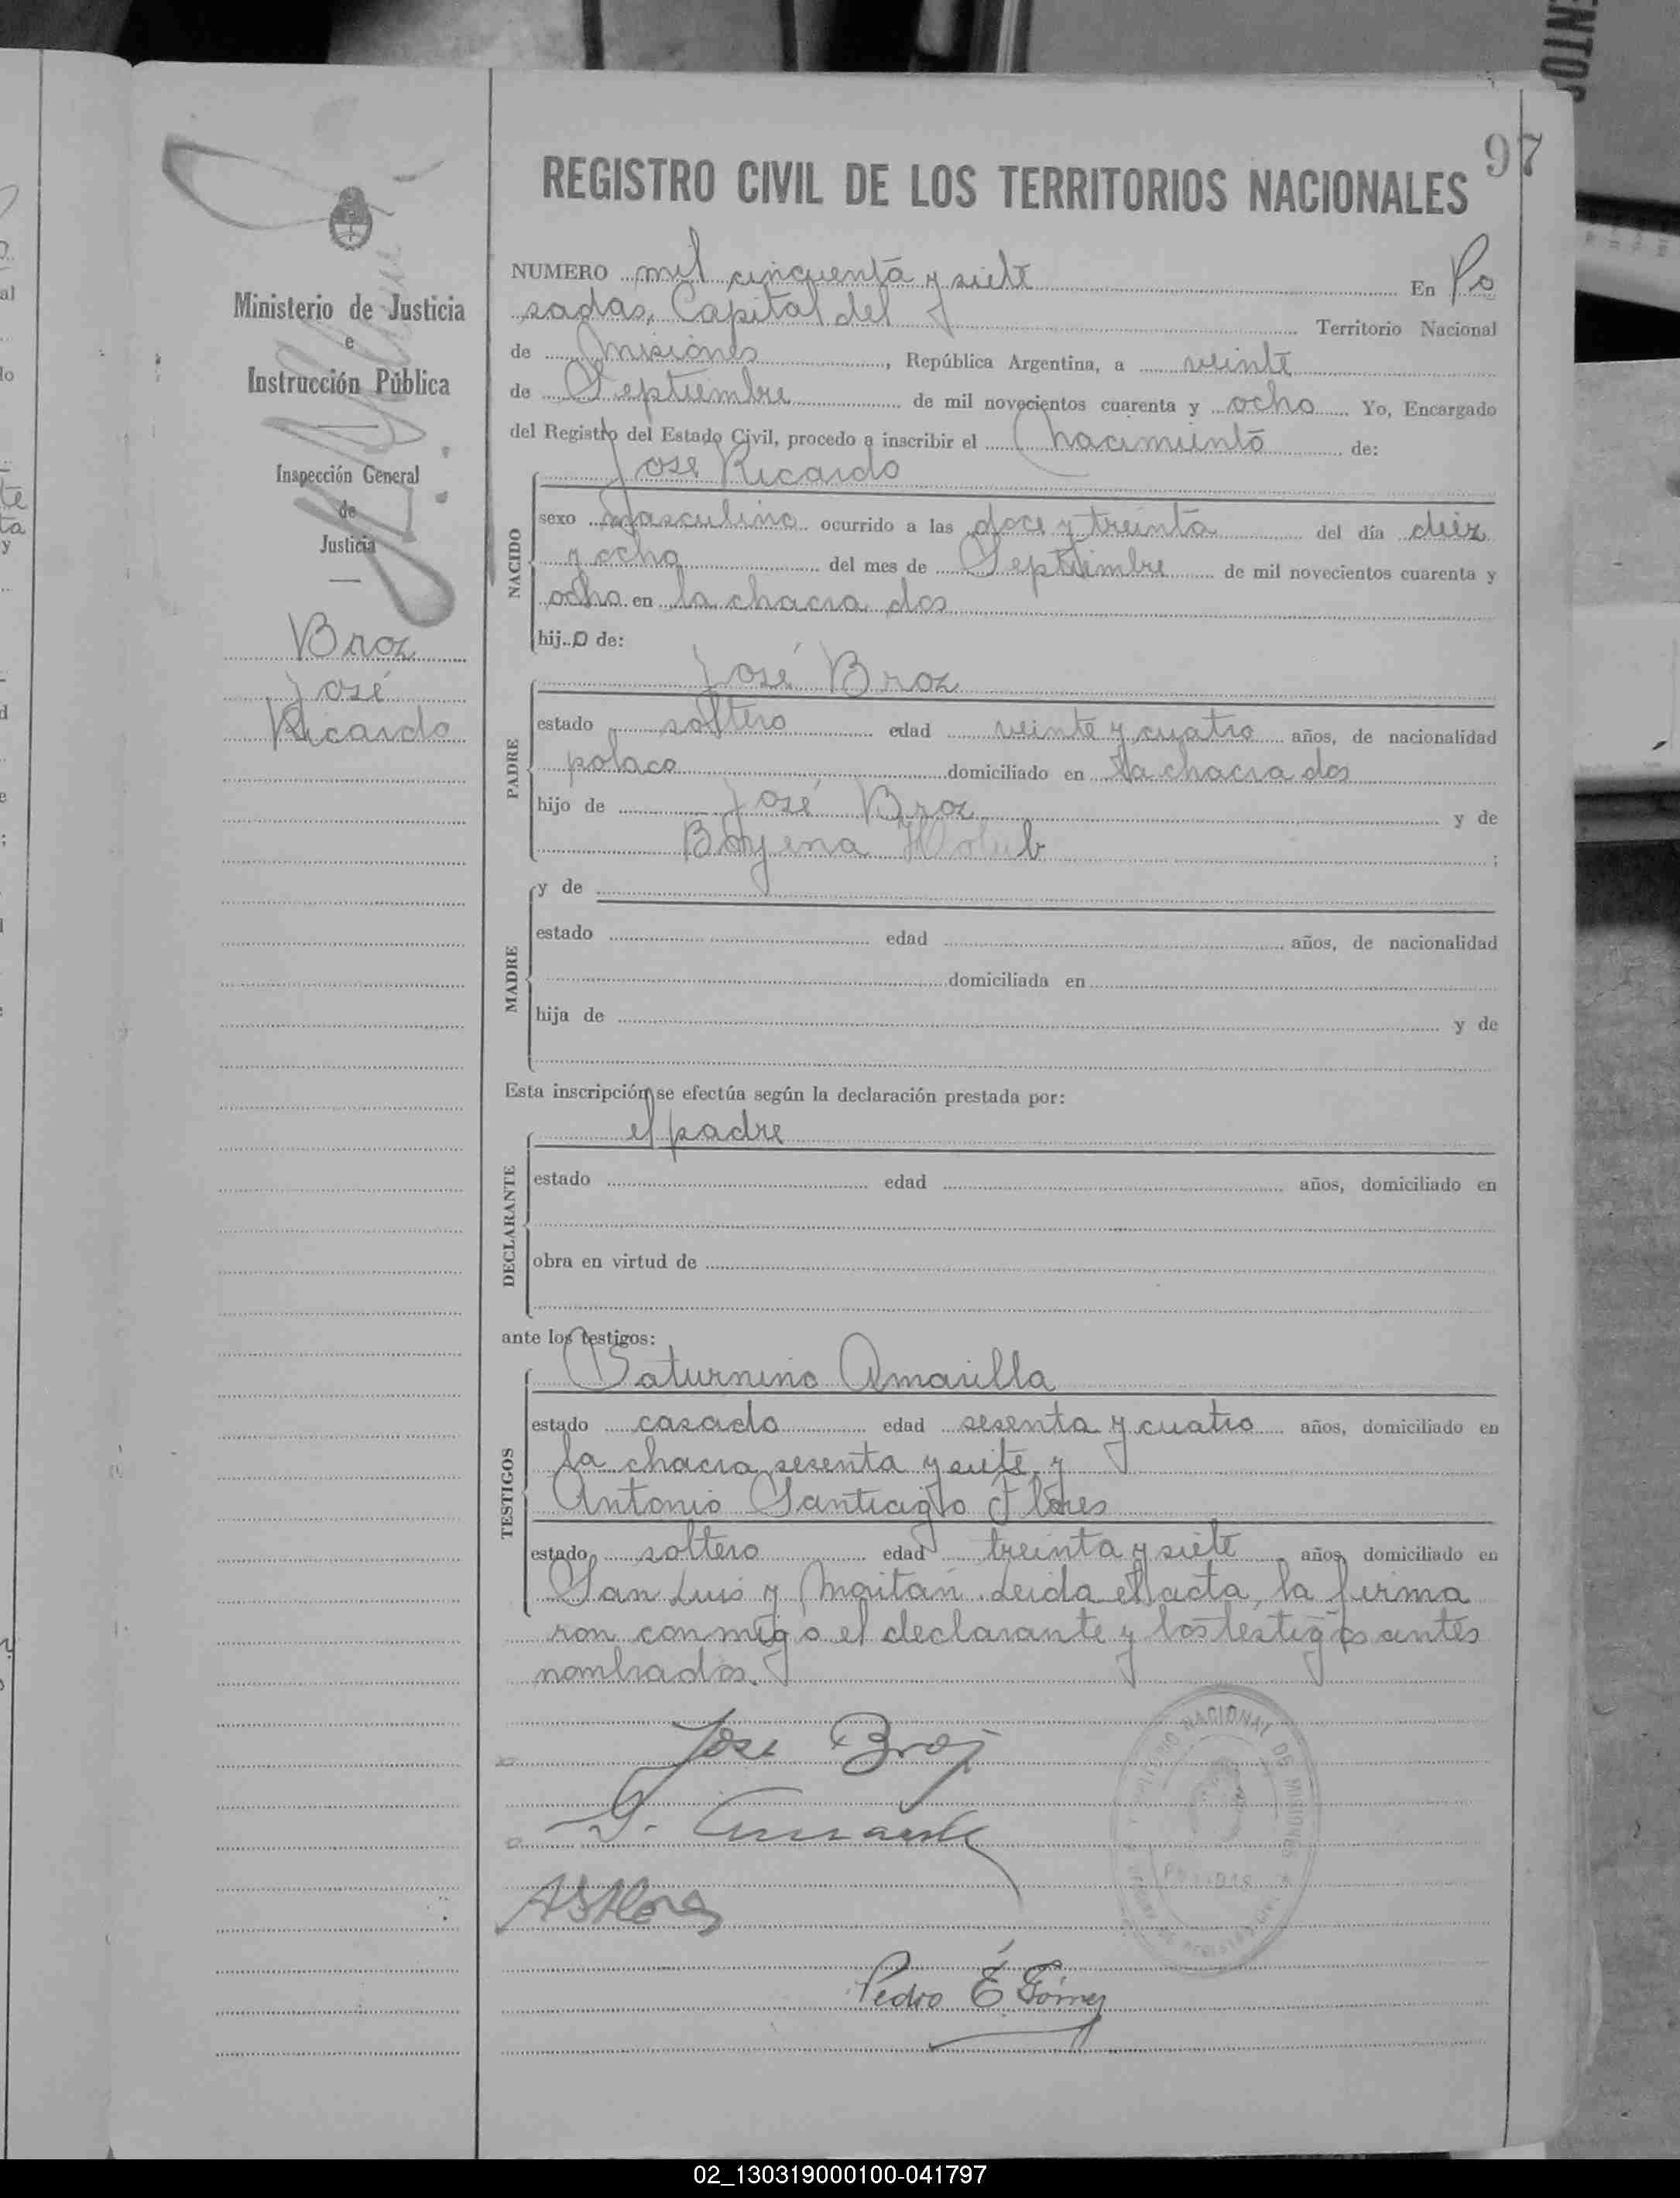 ENTOS
97
REGISTRO CIVIL DE LOS TERRITORIOS NACIONALES
Ministerio de Justicia
e
Instrucción Pública
Inspección General
de
Justicia
Broz
José
Ricardo
NUMERO mil cinquenta y siete En Po
sadas, Capital del Territorio Nacional
de Misiones, República Argentina, a veinte
de Septiembre de mil novecientos cuarenta y ocho Yo, Encargado
del Registro del Estado Civil, procedo a inscribir el nacimiento de:
José Ricardo
NACIDO
sexo masculino ocurrido a las doce y treinta del día diez
y ocho del mes de Septiembre de mil novecientos cuarenta y
ocho en la chacra dos
hijo de:
José Broz
PADRE
estado soltero edad veinte y cuatro años, de nacionalidad
polaco domiciliado en la chacra dos
hijo de José Broz y de
Boyena Holub ;
MADRE
y de
estado edad años, de nacionalidad
domiciliada en
hija de y de
Esta inscripción se efectúa según la declaración prestada por:
el padre
DECLARANTE
estado edad años, domiciliado en
obra en virtud de
ante los testigos:
Saturnino Amarilla
TESTIGOS
estado casado edad sesenta y cuatro años, domiciliado en
la chacra sesenta y siete y
Antonio Santiago Flores
estado soltero edad treinta y siete años, domiciliado en
San Luis y Maitan. Leida el acta, la firma
ron conmigo el declarante y los testigos antes
nombrados.
José Broz
ASFlores
Pedro E Gómez
POSADAS
02_130319000100-041797